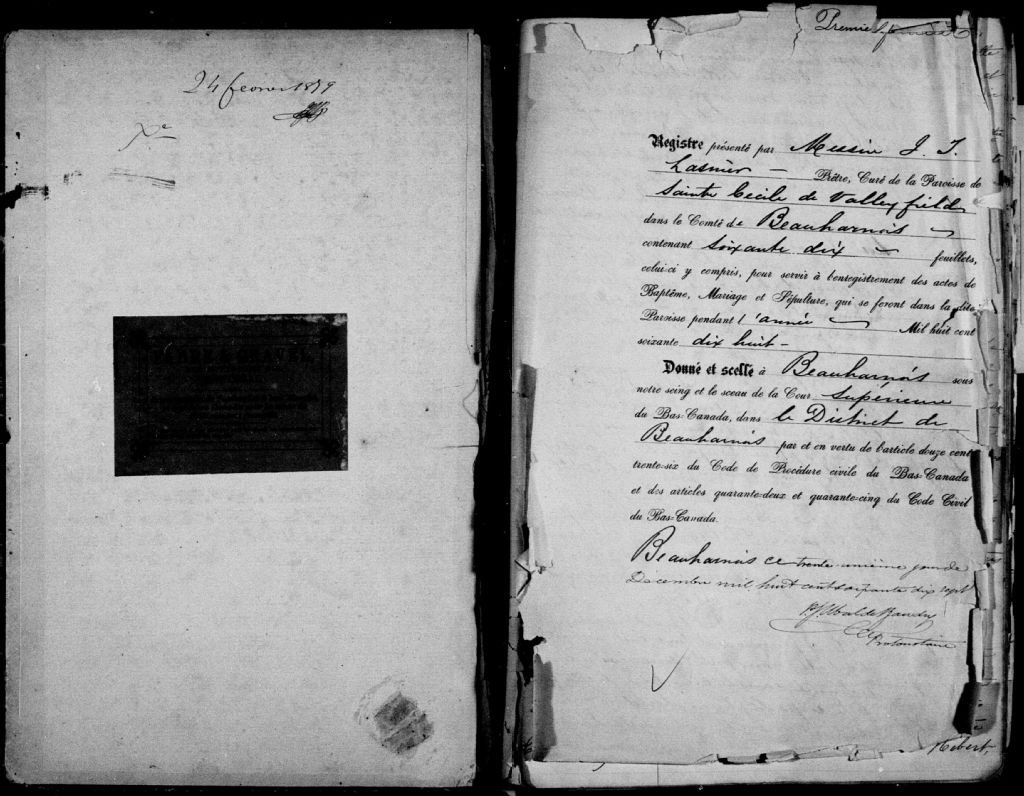 24 fevrier 1879
No
Premier feuillet
Registre présenté par Messire J. T.
Lasnier — Prêtre, Curé de la Paroisse de
Sainte Cecile de Valleyfield
dans le Comté de Beauharnois
contenant soixante dix feuillets,
celui-ci y compris, pour servir à l'enregistrement des actes de
Baptême, Mariage et Sépulture, qui se feront dans la dite
Paroisse pendant l'année Mil huit cent
soixante dix huit —
Donné et scellé à Beauharnois sous
notre seing et le sceau de la Cour Supérieure
du Bas-Canada, dans le District de
Beauharnois par et en vertu de l'article douze cent
trente-six du Code de Procédure civile du Bas-Canada
et des articles quarante-deux et quarante-cinq du Code Civil
du Bas-Canada.
Beauharnois ce trente unième jour de
Decembre mil huit cent soixante dix sept
Protonotaire
Hebert.